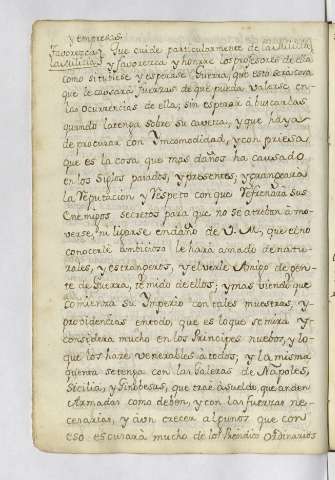 y empresas.
Favorezca Que cuide particularmente de la Milicia
la Milicia y favorezca y honrre los profesores de ella
como si tubiese y esperase Guerra, que esto será cosa
que le causará fuerzas de que pueda valerse en-
las ocurrencias de ella; sin esperar à buscarlas
quando la tenga sobre su cavera, y que haya
de procurar con Yncomodidad, y con priesa
que es la cosa que mas daños ha causado
en los Siglos pasados, y presentes; y grangeará
la Reputacion y Respeto con que Refrenará sus
Enemigos secretos para que no se atreban à mo-
verse, ni ligarse en daño de V. M., que el no
conocerle ambicioso le hará amado de natu-
rales, y estrangeros, y el verle Amigo de gen-
te de Guerra, temido de ellos; y mas viendo que
comienza su Imperio con tales muestras, y
providencias en todo, que es lo que se mira y-
considera mucho en los Principes nuebos, y lo-
que los hace venerables à todos; y la misma
quenta se tenga con las Galeras de Napoles,
Sicilia, y Ginobesas, que trae à sueldo, que anden
Armadas como deben, y con las fuerzas ne-
cesarias, y aun crecer algunas que con
eso escusará mucho de los Presidios Ordinarios